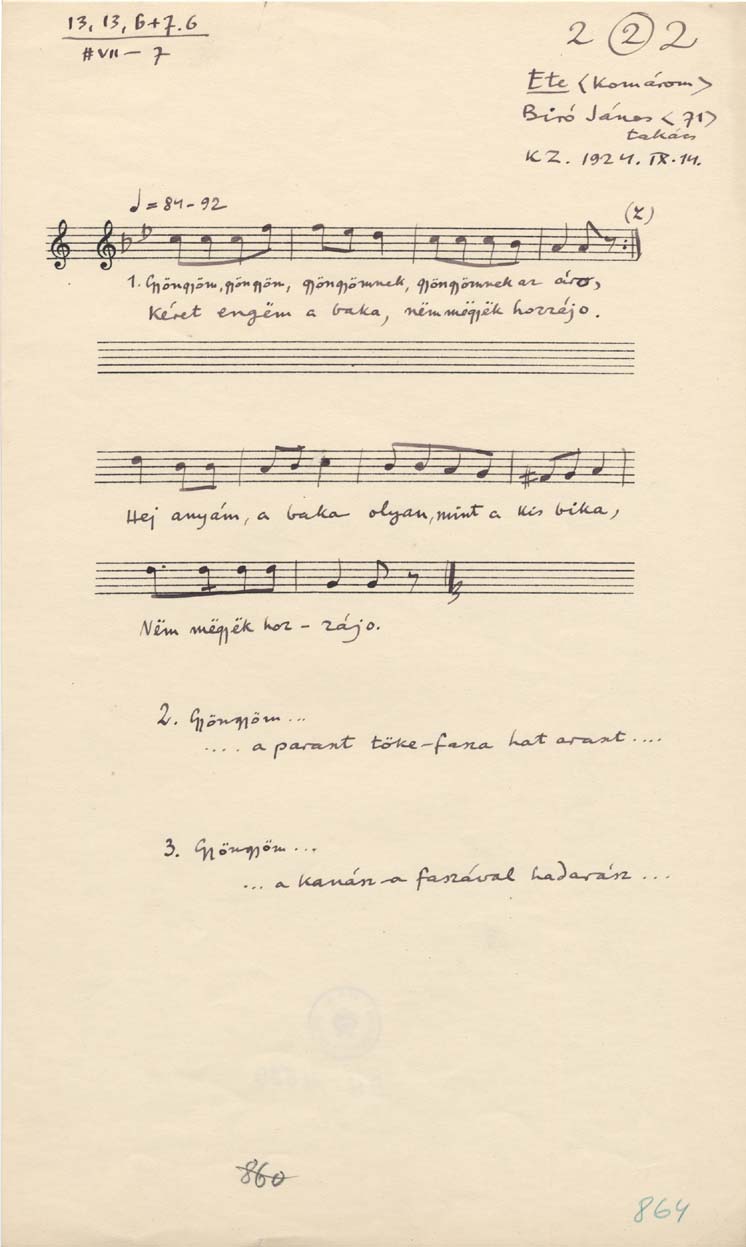 13, 13, 6+7.6
#VII — 7
2 2 2
Ete <Komárom>
Biró János <71>
takács
KZ. 1924. IX. 14.
♩ = 84 - 92
(Z)
1. Gyöngyöm, gyöngyöm, gyöngyömnek, gyöngyömnek az áro,
Kéret engëm a baka, nëm mëgyëk hozzájo.
Hej anyám, a baka olyan, mint a kis bika,
Nëm mëgyëk hoz - zájo.
2. Gyöngyöm ...
.... a paraszt töke-fasza hat araszt ....
3. Gyöngyöm ...
... a kanász a faszával hadarász ...
860
864